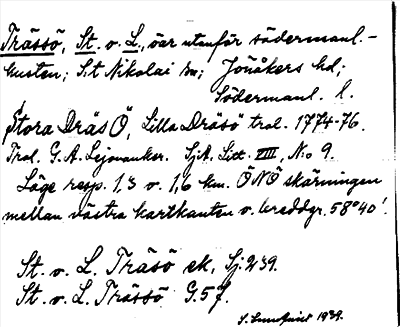 Trässö, St. o. L., öar utanför södermanl.-
kusten; S:t Nikolai sn; Jönåkers hd;
Södermanl. l.
Stora Dräsö, Lilla Dräsö trol. 1774-76.
Trol. G. A. Lejonanker. SjA. Litt. VIII, N:o 9.
Läge resp. 1,3 o. 1,6 km. ÖNÖ skärningen
mellan västra kartkanten o. breddgr. 58°40'.
St. o. L. Träsö ek. Sj. 239.
St. o. L. Trässö G. 57.
S. Lundqvist 1939.